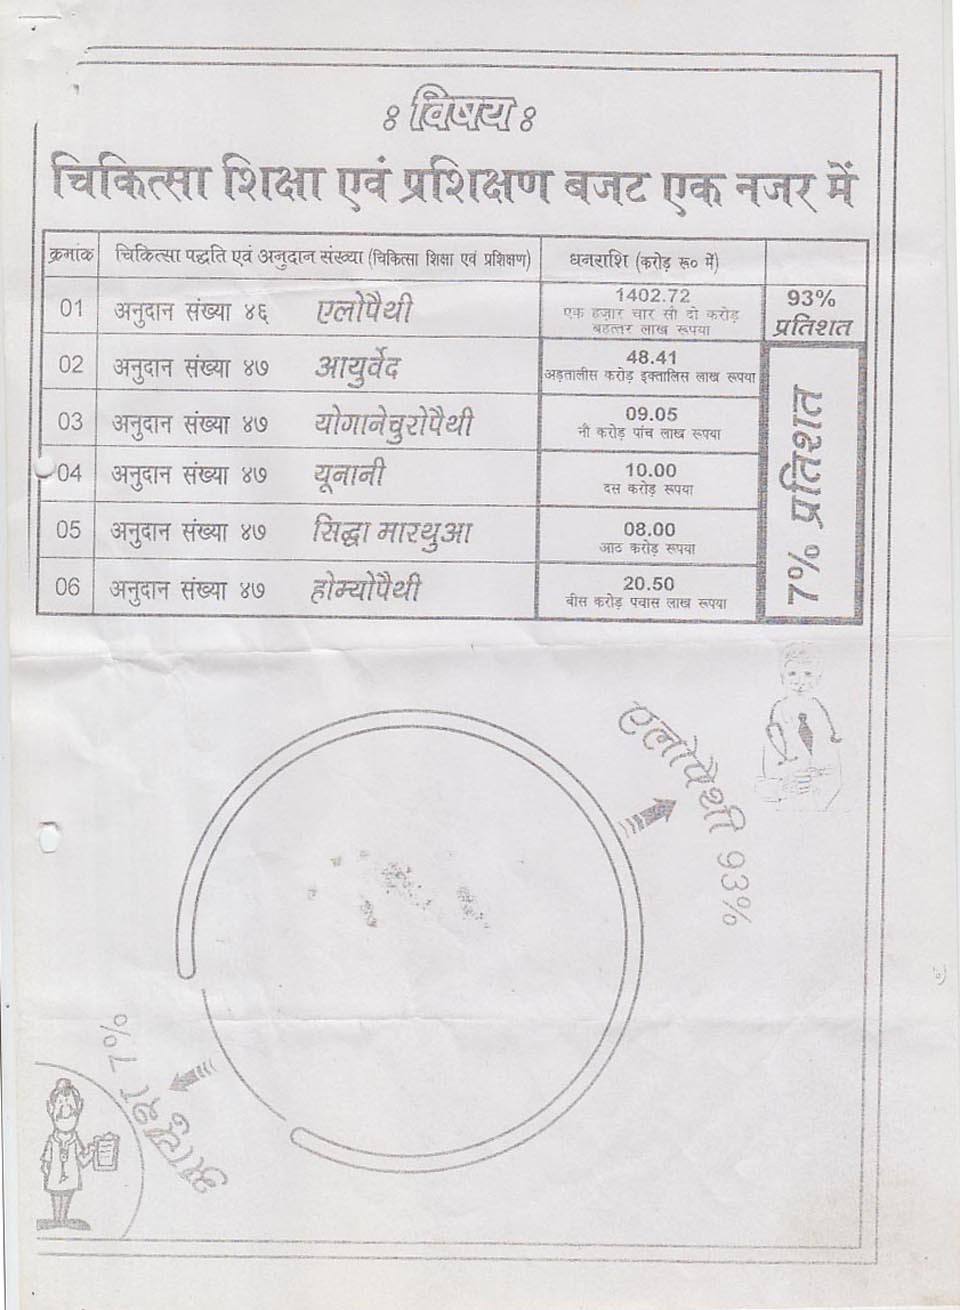 : विषय :
चिकित्सा शिक्षा एवं प्रशिक्षण बजट एक नजर में
क्रमांक चिकित्सा पद्धति एवं अनुदान संख्या (चिकित्सा शिक्षा एवं प्रशिक्षण) धनराशि (करोड़ रू० में)
01 अनुदान संख्या ४६ एलोपैथी 1402.72 93%
एक हज़ार चार सौ दो करोड़ प्रतिशत
बहत्तर लाख रूपया
02 अनुदान संख्या ४७ आयुर्वेद 48.41
अड़तालीस करोड़ इक्तालिस लाख रूपया
03 अनुदान संख्या ४७ योगानेचुरोपैथी 09.05
नौ करोड़ पांच लाख रूपया
04 अनुदान संख्या ४७ यूनानी 10.00
दस करोड़ रूपया
05 अनुदान संख्या ४७ सिद्धा मारथुआ 08.00
आठ करोड़ रूपया
06 अनुदान संख्या ४७ होम्योपैथी 20.50
बीस करोड़ पचास लाख रूपया
7% प्रतिशत
एलोपैथी 93%
आयुश 7%